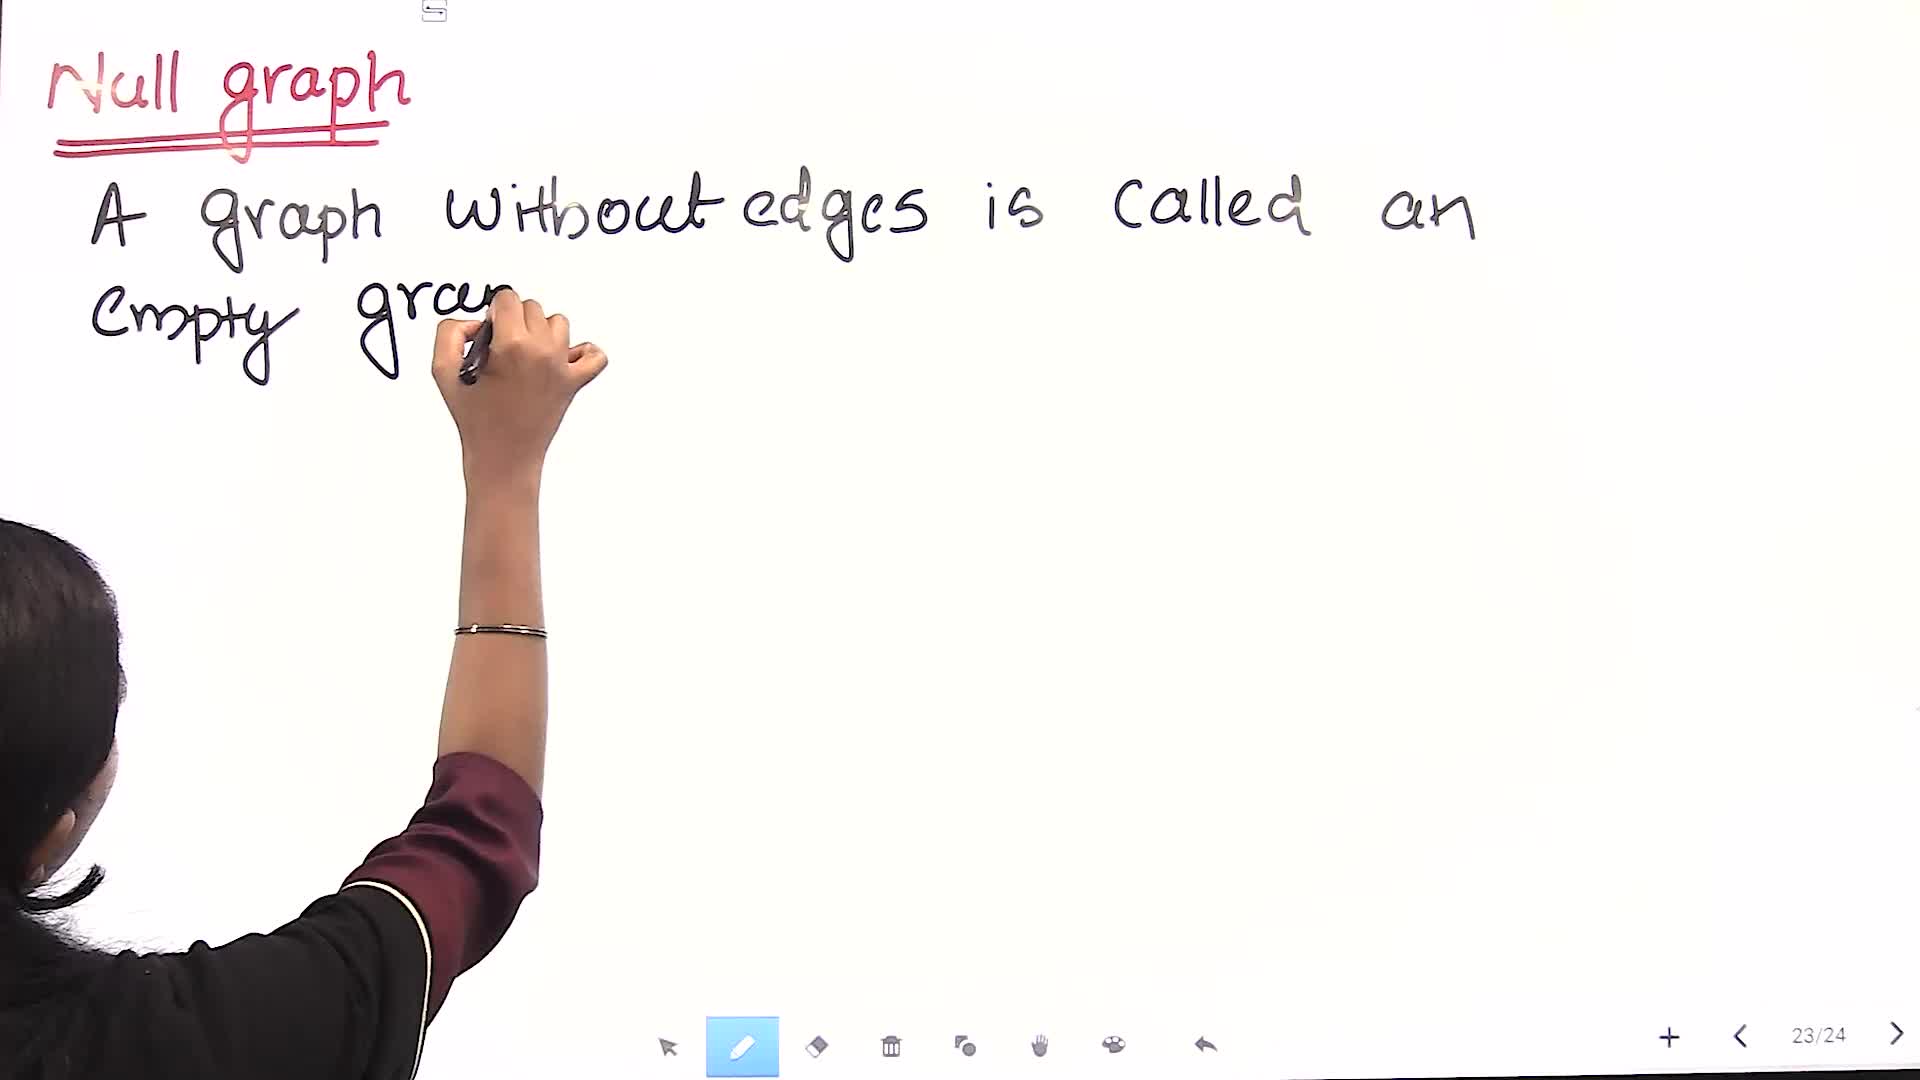 Null graph
A graph without edges is called an
empty
23/24